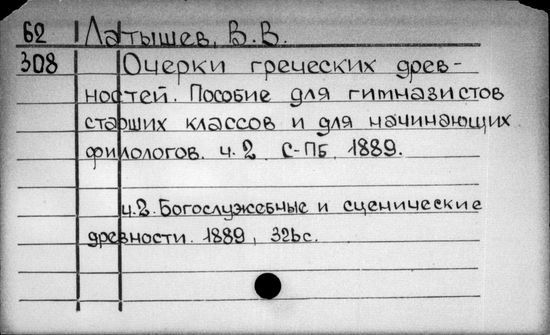 62 Латышев, В.В.
308 Очерки греческих древ-
ностей. Пособие для гимназистов
старших классов и для начинающих
филологов. ч.2 С-ПБ, 1889.
ч.2. Богослужебные и сценические
древности. 1889, 326с.